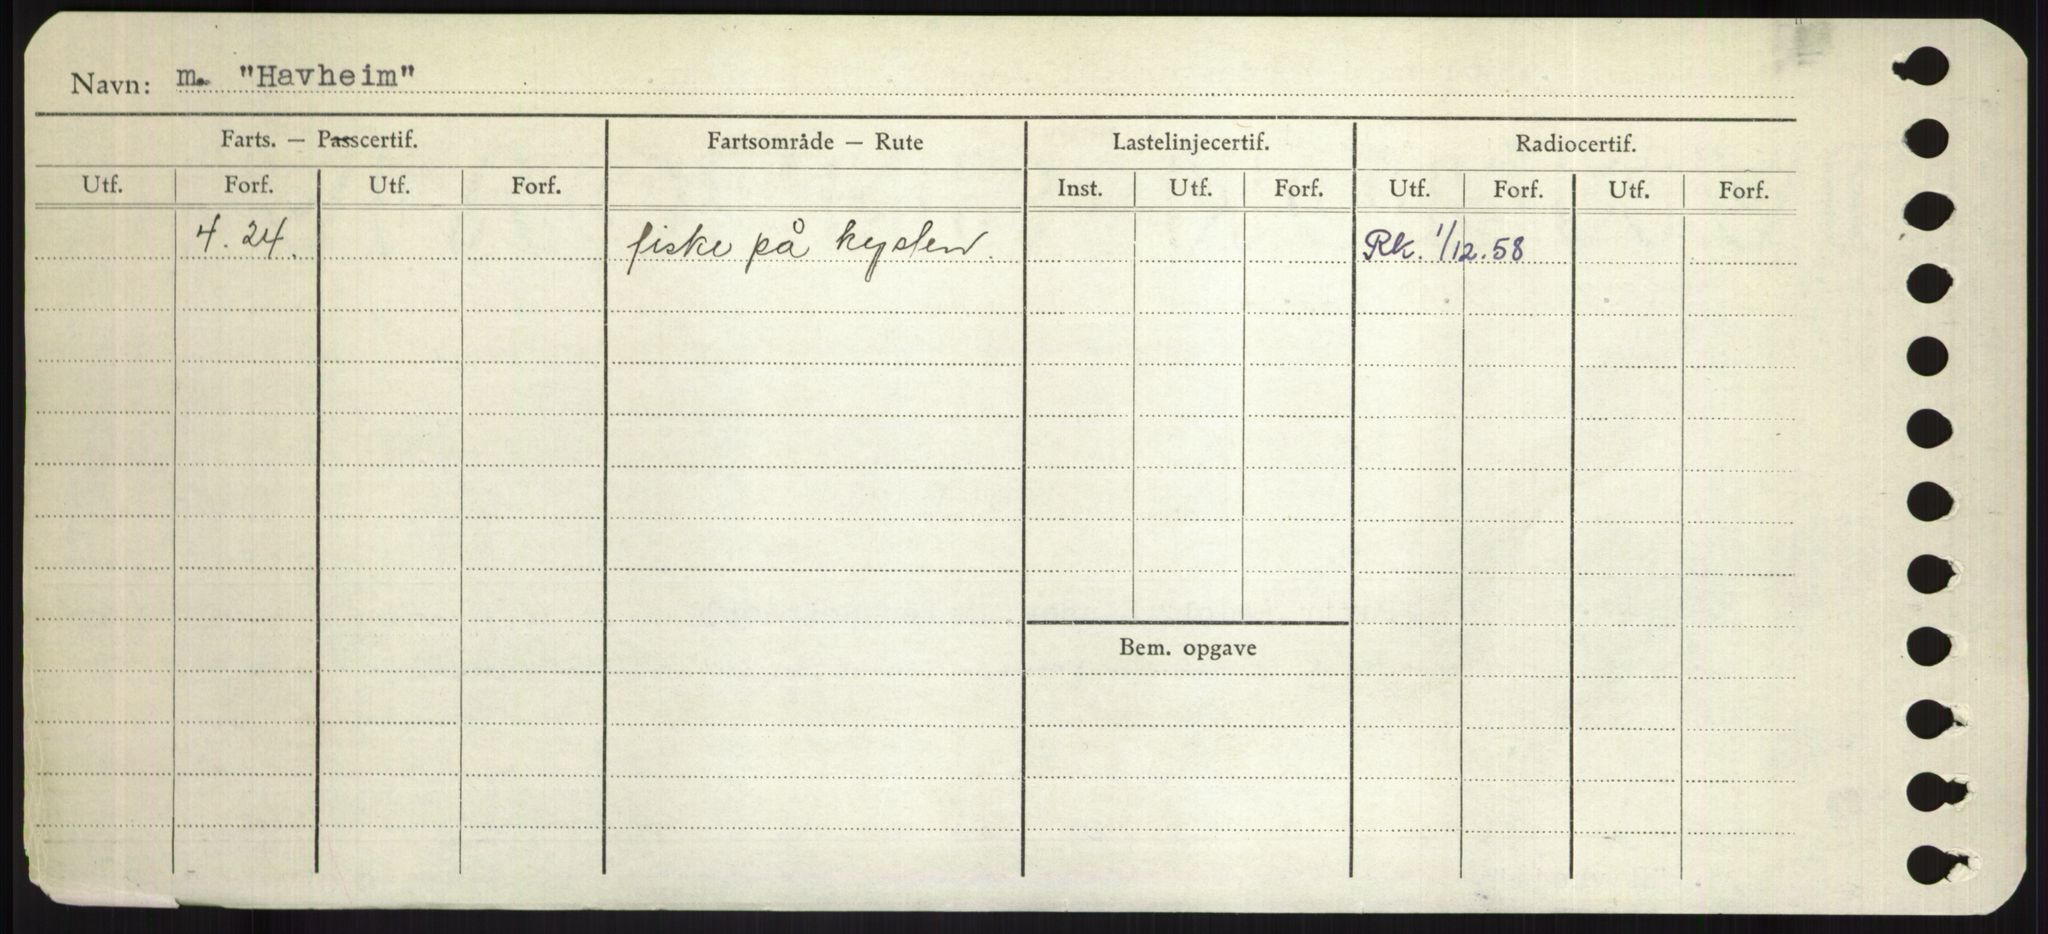 Navn: m. "Havheim"
Farts. — Passcertif. Fartsområde — Rute Lastelinjecertif. Radiocertif.
Utf. Forf. Utf. Forf. Inst. Utf. Forf. Utf. Forf. Utf. Forf.
4. 24. fiske på kysten. Rk. 1/12.58
Bem. opgave